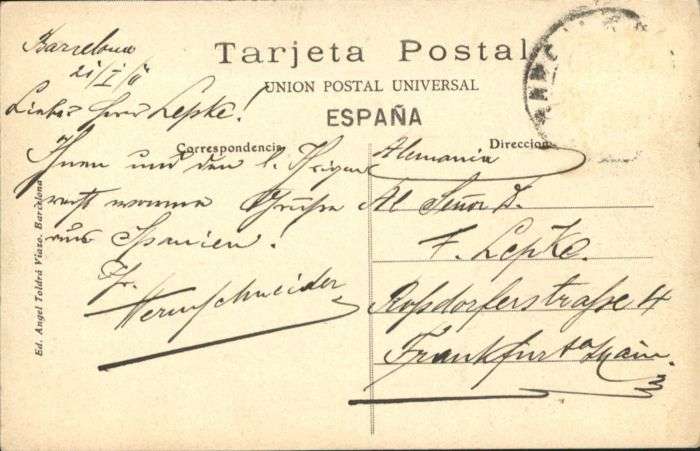 Tarjeta Postal
UNION POSTAL UNIVERSAL
ESPAÑA
Correspondencia
Direccion
Barcelona
21/I/
Lieber Herr Lepke!
Ihnen und den l. Ihrigen
recht warme Grüße
aus Spanien!
Fr.
Alemania
Al Señor D.
F. Lepke.
Roßdorferstraße 4
Frankfurt a Main.
Ed. Angel Toldrá Viazo. Barcelona